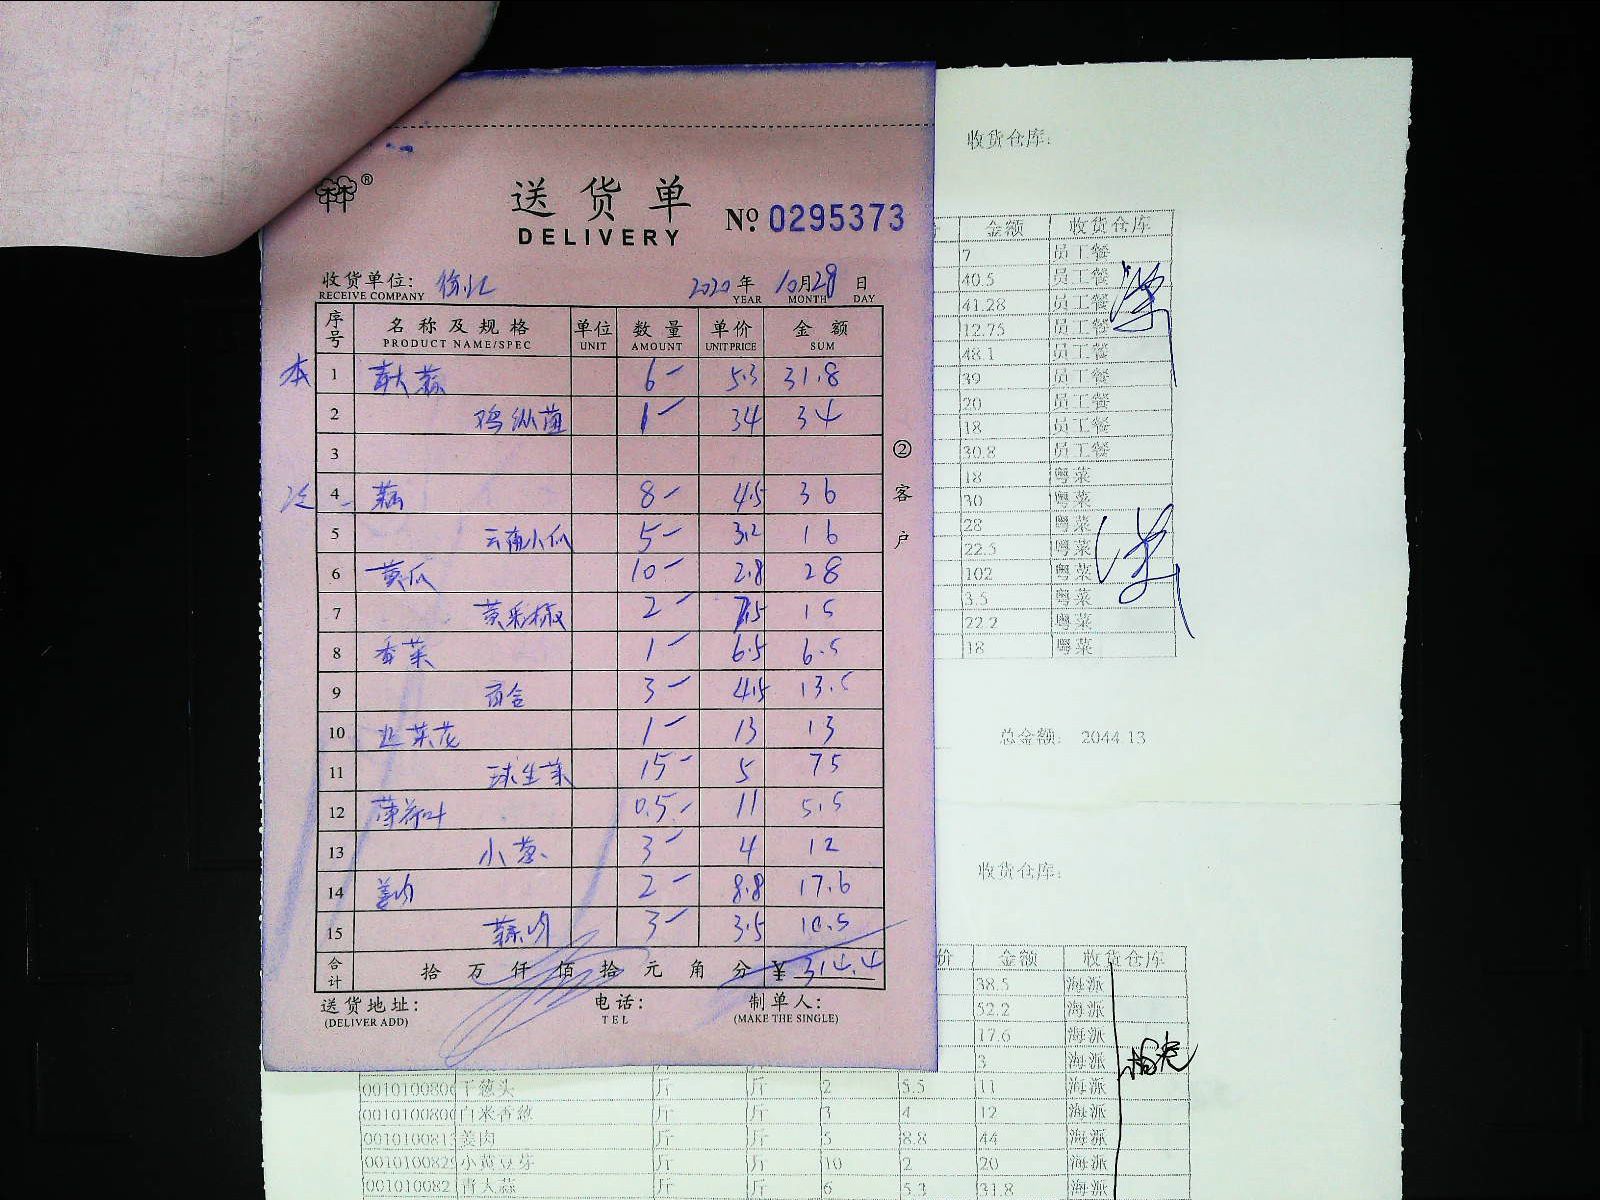 送货单
DELIVERY
№ 0295373
收货单位: 徐汇 2020 年 10月28 日
RECEIVE COMPANY YEAR MONTH DAY
序号 名称及规格 单位 数量 单价 金额
PRODUCT NAME/SPEC UNIT AMOUNT UNIT PRICE SUM
本
1 青大蒜 6 5.3 31.8
2 鸡纵菌 1 34 34
3
4 藕 8 4.5 36
5 云南小瓜 5 3.2 16
6 黄瓜 10 2.8 28
7 黄彩椒 2 7.5 15
8 香菜 1 6.5 6.5
9 百合 3 4.5 13.5
10 韭菜花 1 13 13
11 球生菜 15 5 75
12 薄荷叶 0.5 11 5.5
13 小葱 3 4 12
14 姜肉 2 8.8 17.6
15 蒜肉 3 3.5 10.5
合计 拾 万 仟 佰 拾 元 角 分 ¥ 314.4
送货地址: 电话: 制单人:
(DELIVER ADD) TEL (MAKE THE SINGLE)
②客户
收货仓库:
金额 收货仓库
7 员工餐
40.5 员工餐
41.28 员工餐
12.75 员工餐
48.1 员工餐
39 员工餐
20 员工餐
18 员工餐
30.8 员工餐
18 粤菜
30 粤菜
28 粤菜
22.5 粤菜
102 粤菜
3.5 粤菜
22.2 粤菜
18 粤菜
总金额: 2044.13
收货仓库:
价 金额 收货仓库
38.5 海派
52.2 海派
17.6 海派
3 海派
干葱头 斤 斤 2 5.5 11 海派
白米香葱 斤 斤 3 4 12 海派
姜肉 斤 斤 5 8.8 44 海派
小黄豆芽 斤 斤 10 2 20 海派
青大蒜 斤 斤 6 5.3 31.8 海派